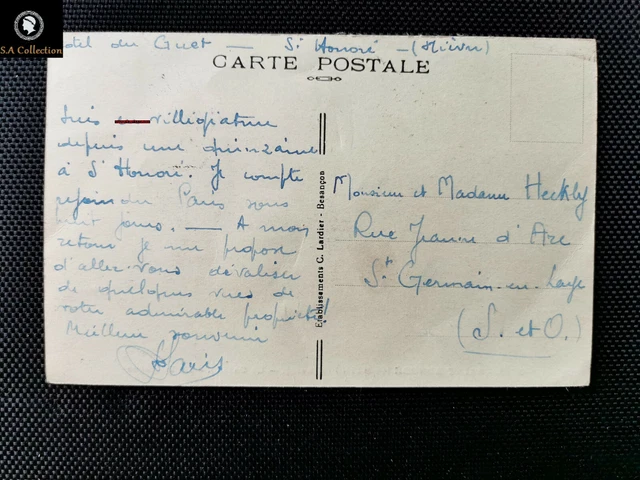 S.A Collection
du Guet — St Honoré — (Nièvre)
CARTE POSTALE
Suis en villégiature
depuis une quinzaine
à St Honoré. Je compte
rejoindre Paris sous
huit jours. — A mon
retour je me propose
d'aller vous dévaliser
de quelques vues de
votre admirable propriété!
Meilleur souvenir
Etablissements C. Lardier - Besançon
Monsieur et Madame Heckly
Rue Jeanne d'Arc
St Germain-en-Laye
(S. et O.)